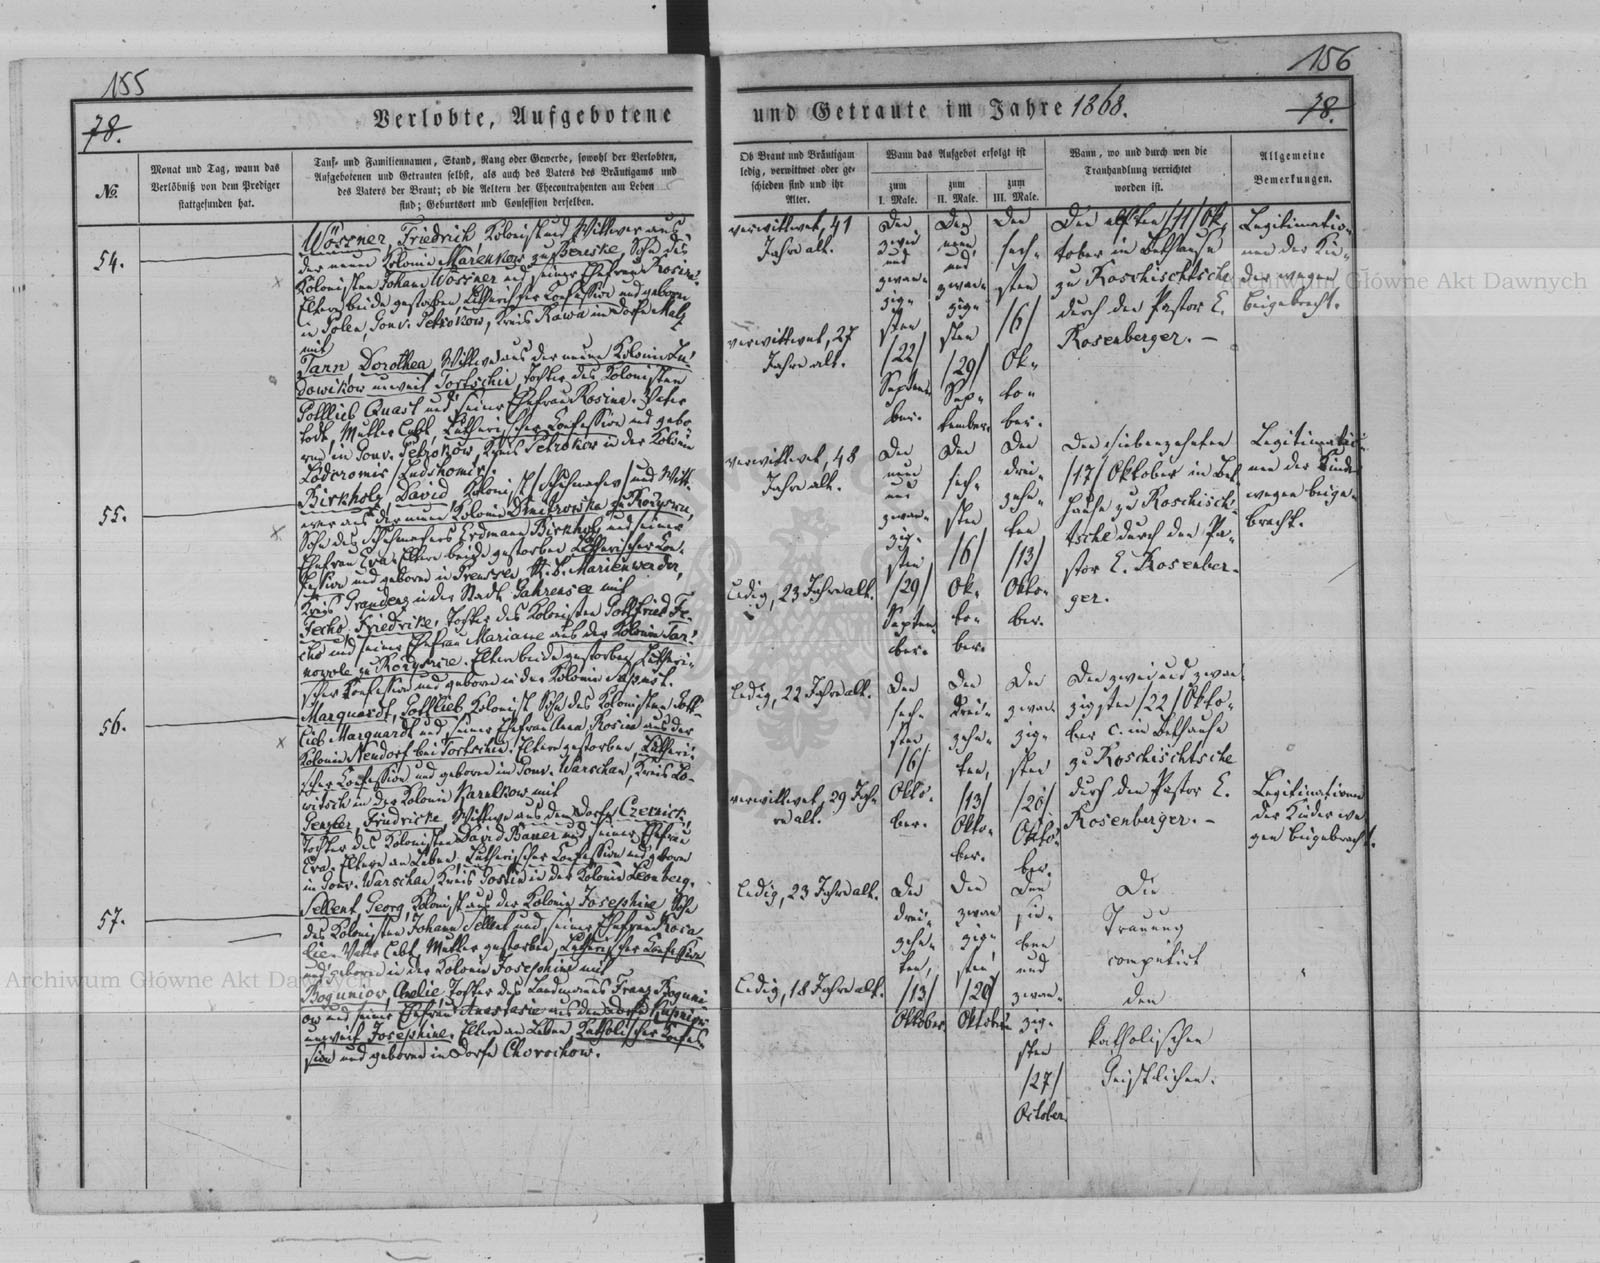 155
156
78.
78.
Verlobte, Aufgebotene
und Getraute im Jahre 1868.
№.
Monat und Tag, wann das
Verlöbniß von dem Prediger
stattgefunden hat.
Tauf- und Familiennamen, Stand, Rang oder Gewerbe, sowohl der Verlobten,
Aufgebotenen und Getrauten selbst, als auch des Vaters des Bräutigams und
des Vaters der Braut; ob die Aeltern der Ehecontrahenten am Leben
sind; Geburtsort und Confession derselben.
Ob Braut und Bräutigam
ledig, verwittwet oder ge-
schieden sind und ihr
Alter.
Wann das Aufgebot erfolgt ist
zum
I. Male.
zum
II. Male.
zum
III. Male.
Wann, wo und durch wen die
Trauhandlung verrichtet
worden ist.
Allgemeine
Bemerkungen.
54.
Wörzner, Friedrich, Kolonist und Wittwer aus
der neuen Kolonie Marenkow zu Bereske, Sohn des
Kolonisten Johann Wörzner und seiner Ehefrau Rosine.
Eltern beide gestorben, Lutherischer Konfession und geboren
in Polen, Gouv. Petrokow, Kreis Rawa in Dorfe
mit
Tarn, Dorothea, Wittwe aus der neuen Kolonie Lu-
dowikow unweit Tortschin, Tochter des Kolonisten
Gottlieb Quast und seiner Ehefrau Rosina. Vater
todt, Mutter lebt, Lutherischer Konfession und gebo-
ren in Gouv. Petrokow, Kreis Petrokow in der Kolonie
verwittwet, 41
Jahre alt.
verwittwet, 27
Jahre alt.
Den
zwei
und
zwan-
zig-
sten
/22/
Septem-
ber.
Den
neun
und
zwan-
zig-
sten
/29/
Sep-
tember.
Den
sech-
sten
/6/
Ok-
to-
ber.
Den elften /11/ Ok-
tober im Bethause
zu Roschischtsche
durch den Pastor E.
Rosenberger. –
Legitimatio-
nen der Kin-
der wegen
beigebracht.
55.
Birkholz, David, Kolonist /Schuhmacher/ und Witt-
wer aus der neuen Kolonie Dmitrowka zu
Sohn des Schuhmachers Erdmann Birkholz und seiner
Ehefrau Eva. Eltern beide gestorben Lutherischer Kon-
fession und geboren in Preussen, R. B. Marienwerder,
Kreis Graudenz in der Stadt mit
Fecho, Friedrike, Tochter des Kolonisten Gottfried Fe-
cho und seiner Ehefrau Mariane aus der Kolonie Tar-
Eltern beide gestorben, Lutheri-
scher Konfession und geboren in der Kolonie
verwittwet, 48
Jahre alt.
ledig, 23 Jahre alt.
Den
neun
und
zwan-
zig-
sten
/29/
Septem-
ber.
Den
sech-
sten
/6/
Ok-
to-
ber.
Den
drei-
zehn-
ten
/13/
Okto-
ber.
Den siebenzehnten
/17/ Oktober im Bet-
hause zu Roschisch-
tsche durch den Pa-
stor E. Rosenber-
ger.
Legitimatio-
nen der Kinder
wegen beige-
bracht.
56.
Marquardt, Gottlieb, Kolonist Sohn des Kolonisten Gott-
lieb Marquardt und seiner Ehefrau Anna Rosine aus der
Kolonie Neudorf bei Tortschin. Eltern gestorben, Lutheri-
scher Konfession und geboren in Gouv. Warschau, Kreis Lo-
witsch in der Kolonie mit
Friedricke, Wittwe aus dem Dorfe
Tochter des Kolonisten David Bauer und seiner Ehefrau
Eva. Eltern am Leben, Lutherischer Konfession und geboren
in Gouv. Warschau, Kreis Gostin in der Kolonie Leonberg.
ledig, 22 Jahre alt.
verwittwet, 29 Jah-
re alt.
Den
sech-
sten
/6/
Okto-
ber.
Den
drei-
zehn-
ten,
/13/
Okto-
ber.
Den
zwan-
zig-
sten
/20/
Okto-
ber.
Den zwei und zwan-
zigsten /22/ Okto-
ber c. im Bethause
zu Roschischtsche
durch den Pastor E.
Rosenberger. –
Legitimationen
der Kinder we-
gen beigebracht.
57.
Sellent, Georg, Kolonist aus der Kolonie Josephine Sohn
des Kolonisten Johann Sellent und seiner Ehefrau Rosa-
lie. Vater lebt, Mutter gestorben, Lutherischer Konfession
und geboren in der Kolonie Josephine mit
Boguniow, Amelie, Tochter des Landmannes Franz Boguni-
ow und seiner Ehefrau Anastasie aus dem Dorfe
unweit Josephine. Eltern am Leben Katholischer Konfes-
sion und geboren in Dorfe Chorochow.
ledig, 23 Jahre alt.
ledig, 18 Jahre alt.
Den
drei-
zehn-
ten,
/13/
Oktober.
Den
zwan-
zig-
sten
/20/
Oktober
Den
sie-
ben
und
zwan-
zig-
sten
/27/
October.
Die
Trauung
competirt
dem
katholischen
Geistlichen.
Archiwum Główne Akt Dawnych
Archiwum Główne Akt Dawnych